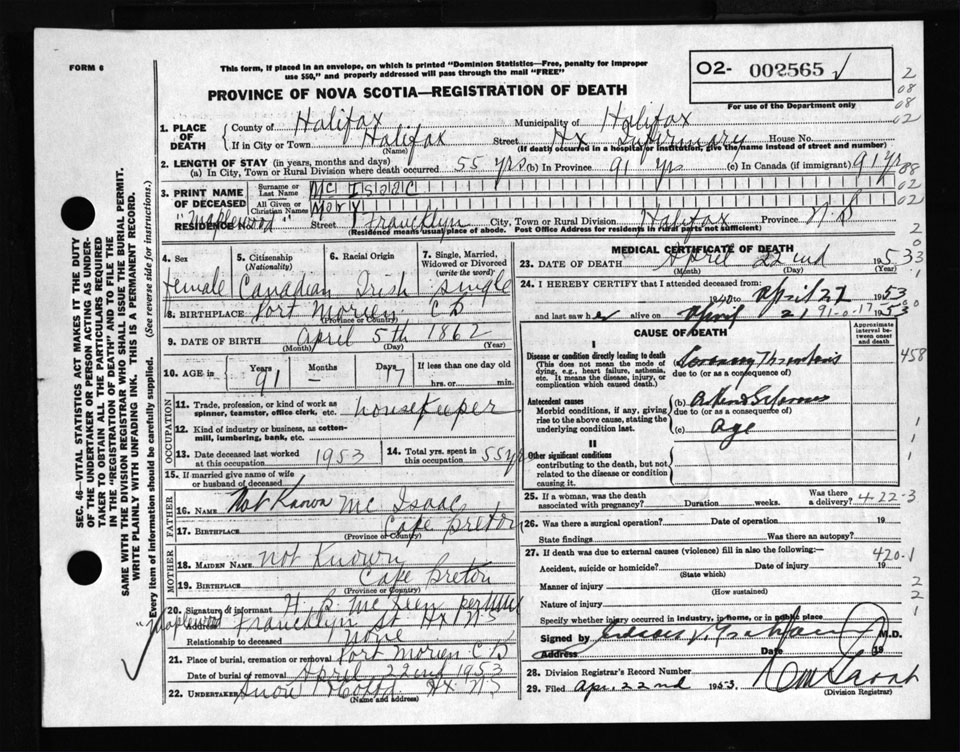 FORM 6
This form, if placed in an envelope, on which is printed "Dominion Statistics—Free, penalty for improper
use $50," and properly addressed will pass through the mail "FREE"
O2- 002565 √
For use of the Department only
PROVINCE OF NOVA SCOTIA—REGISTRATION OF DEATH
1. PLACE OF DEATH { County of Halifax Municipality of Halifax
If in City or Town Halifax Street Hx Infirmary House No.
(Name) (If death occurred in a hospital or institution, give the name instead of street and number)
2. LENGTH OF STAY (in years, months and days)
(a) In City, Town or Rural Division where death occurred 55 yrs (b) In Province 91 yrs (c) In Canada (if immigrant) 91 yrs
3. PRINT NAME OF DECEASED { Surname or Last Name Mc Isaac
All Given or Christian Names Mary
RESIDENCE No. "Maplewood" Street Francklyn City, Town or Rural Division Halifax Province N.S
(Residence means usual place of abode. Post Office Address for residents in rural parts not sufficient)
4. Sex female
5. Citizenship (Nationality) Canadian
6. Racial Origin Irish
7. Single, Married, Widowed or Divorced (write the word) single
8. BIRTHPLACE Port Morien CB
(Province or Country)
9. DATE OF BIRTH April 5th 1862
(Month) (Day) (Year)
10. AGE in Years 91 Months – Days 17 If less than one day
hrs. or min.
OCCUPATION
11. Trade, profession, or kind of work as spinner, teamster, office clerk, etc. housekeeper
12. Kind of industry or business, as cotton-mill, lumbering, bank, etc.
13. Date deceased last worked at this occupation 1953
14. Total yrs. spent in this occupation 55 yrs
15. If married give name of wife or husband of deceased
FATHER
16. NAME Not Known Mc Isaac
17. BIRTHPLACE Cape Breton
(Province or Country)
MOTHER
18. MAIDEN NAME not Known
19. BIRTHPLACE Cape Breton
(Province or Country)
20. Signature of informant H. B. per
Address "Maplewood" Francklyn St Hx NS
Relationship to deceased None
21. Place of burial, cremation or removal Port Morien CB
Date of burial or removal April 22nd 1953
22. UNDERTAKER Snow Hx NS
(Name and address)
MEDICAL CERTIFICATE OF DEATH
23. DATE OF DEATH April 22nd 1953
(Month) (Day) (Year)
24. I HEREBY CERTIFY that I attended deceased from
1940 to April 22 1953
and last saw her alive on April 21 1953
91-0-17
CAUSE OF DEATH
Approximate interval between onset and death
I
Disease or condition directly leading to death
(This does not mean the mode of dying, e.g., heart failure, asthenia, etc. It means the disease, injury, or complication which caused death.)
Coronary Thrombosis
due to (or as a consequence of)
Antecedent causes
Morbid conditions, if any, giving rise to the above cause, stating the underlying condition last.
(b)
due to (or as a consequence of)
(c) Age
II
Other significant conditions
contributing to the death, but not related to the disease or condition causing it.
25. If a woman, was the death associated with pregnancy? Duration weeks. Was there a delivery?
4-22-3
26. Was there a surgical operation? Date of operation 19
State findings Was there an autopsy?
27. If death was due to external causes (violence) fill in also the following:—
420-1
Accident, suicide or homicide? Date of injury 19
(State which)
Manner of injury
(How sustained)
Nature of injury
Specify whether injury occurred in industry, in home, or in public place
Signed by M.D.
Address Date 19
28. Division Registrar's Record Number
29. Filed Apr. 22nd 1953
(Division Registrar)
SEC. 46—VITAL STATISTICS ACT MAKES IT THE DUTY
OF THE UNDERTAKER OR PERSON ACTING AS UNDER-
TAKER TO OBTAIN ALL THE PARTICULARS REQUIRED
IN THE "REGISTRATION OF DEATH" AND TO FILE THE
SAME WITH THE DIVISION REGISTRAR WHO SHALL ISSUE THE BURIAL PERMIT.
WRITE PLAINLY WITH UNFADING INK. THIS IS A PERMANENT RECORD.
Every item of information should be carefully supplied. (See reverse side for instructions.)
2
08
08
02
88
02
02
458